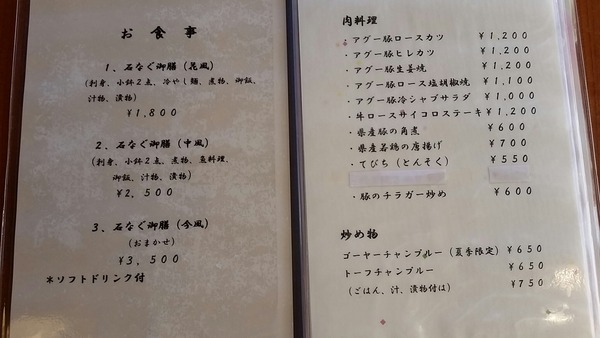 お食事
1、石なぐ御膳（花風）
（刺身、小鉢２点、冷やし麺、煮物、御飯、
汁物、漬物）
￥1,800
2、石なぐ御膳（中風）
（刺身、小鉢２点、煮物、魚料理、
御飯、汁物、漬物）
￥2,500
3、石なぐ御膳（今風）
（おまかせ）
￥3,500
＊ソフトドリンク付
肉料理
・アグー豚ロースカツ ￥1,200
・アグー豚ヒレカツ ￥1,200
・アグー豚生姜焼 ￥1,200
・アグー豚ロース塩胡椒焼 ￥1,100
・アグー豚冷シャブサラダ ￥1,000
・牛ロースサイコロステーキ ￥1,200
・県産豚の角煮 ￥600
・県産若鶏の唐揚げ ￥700
・てびち（とんそく） ￥550
・豚のチラガー炒め ￥600
炒め物
ゴーヤーチャンプルー（夏季限定） ￥650
トーフチャンプルー ￥650
（ごはん、汁、漬物付は） ￥750